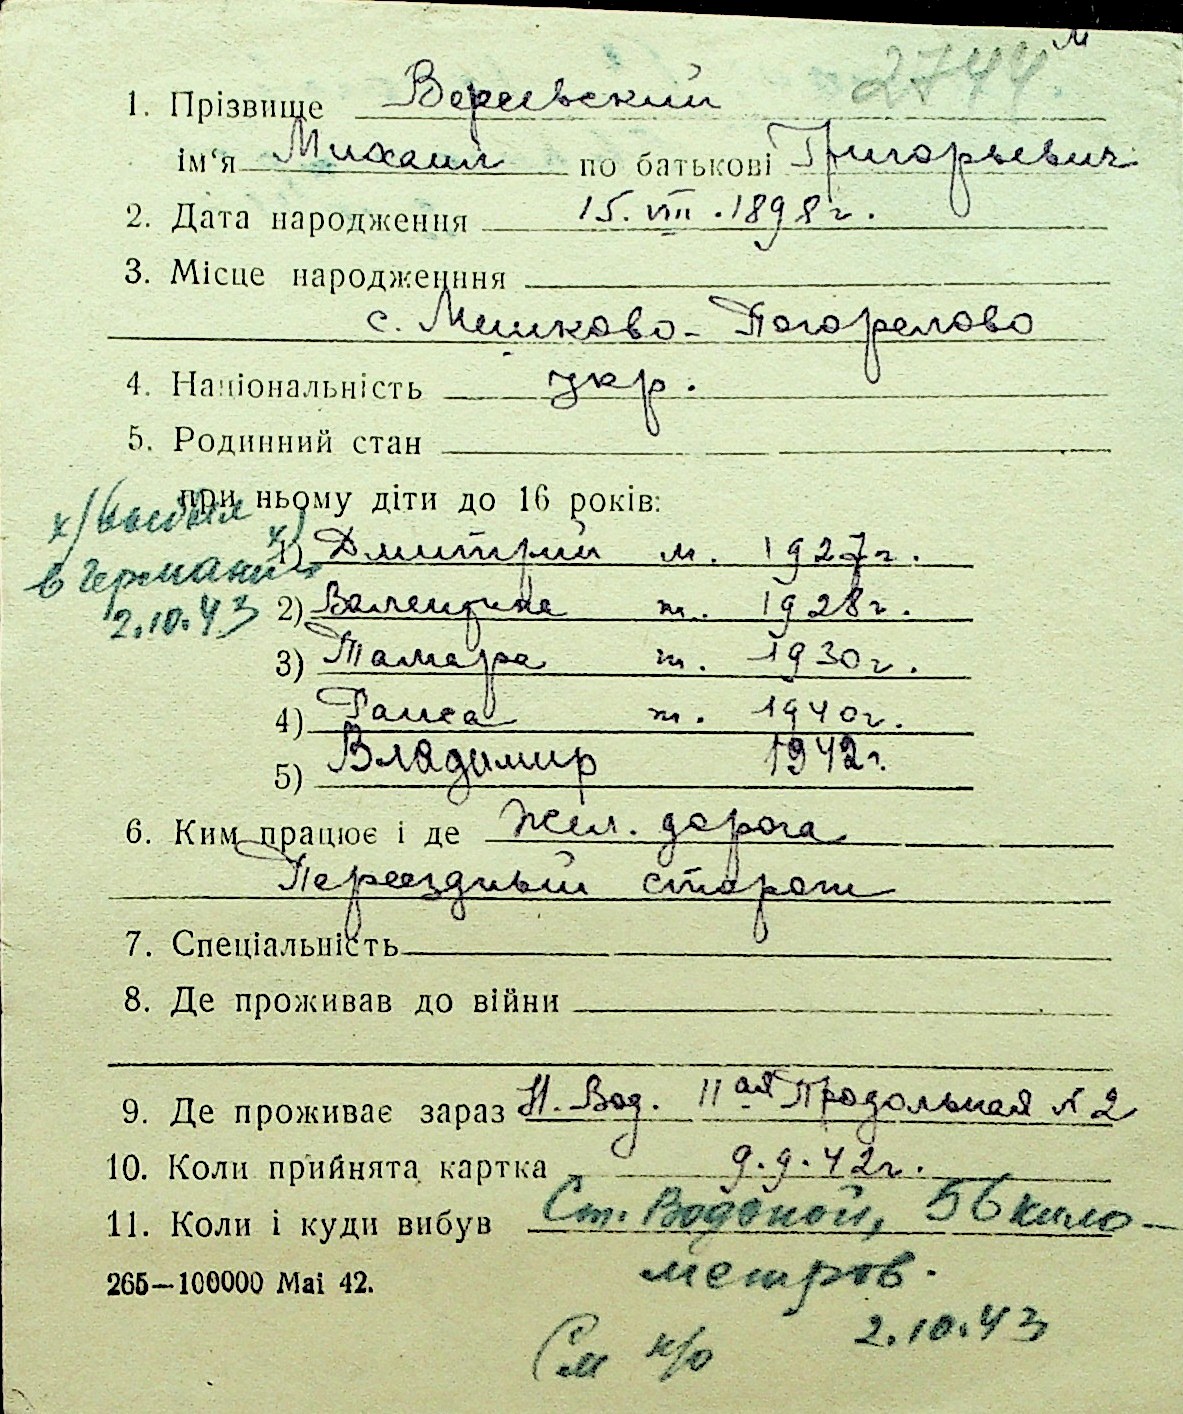 2744 м
1. Прізвище Вереевский
ім‘я Михаил по батькові Григорьевич
2. Дата народження 15.VIII.1898г.
3. Місце народженння
с. Мешково-Погорелово
4. Національність укр.
5. Родинний стан
при ньому діти до 16 років:
х) выбыл
в Германию
2.10.43
х)
1) Дмитрий м. 1927г.
2) Валентина ж. 1928г.
3) Тамара ж. 1930г.
4) Раиса ж. 1940г.
5) Владимир 1942г.
6. Ким працює і де Жел. дорога
Переездный сторож
7. Спеціальність
8. Де проживав до війни
9. Де проживає зараз Н. Вод. II ая Продольная № 2
10. Коли прийнята картка 9.9.42г.
11. Коли і куди вибув Ст. Водопой, 56 кило-
метров.
265—100000 Mai 42.
2.10.43
См н/о